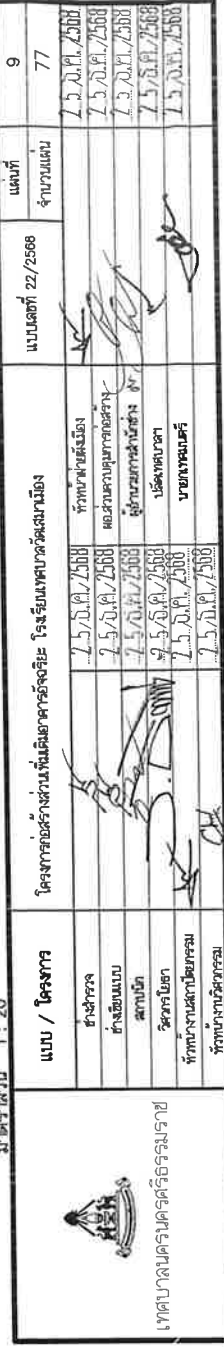 มาตราส่วน 1 : 20
เทศบาลนครนครศรีธรรมราช
แบบ / โครงการ
โครงการก่อสร้างส่วนเพิ่มเติมอาคารอัจฉริยะ โรงเรียนเทศบาลวัดเสมาเมือง
แบบเลขที่ 22/2568
แผ่นที่
9
จำนวนแผ่น
77
ช่างสำรวจ 25/ธ.ค./2568 หัวหน้าฝ่ายผังเมือง 25/ธ.ค./2568
ช่างเขียนแบบ 25/ธ.ค./2568 ผอ.ส่วนควบคุมการก่อสร้าง 25/ธ.ค./2568
สถาปนิก 25/ธ.ค./2568 ผู้อำนวยการสำนักช่าง 25/ธ.ค./2568
วิศวกรโยธา 25/ธ.ค./2568 ปลัดเทศบาลฯ 25/ธ.ค./2568
หัวหน้างานสถาปัตยกรรม 25/ธ.ค./2568 นายกเทศมนตรี 25/ธ.ค./2568
หัวหน้างานวิศวกรรม 25/ธ.ค./2568